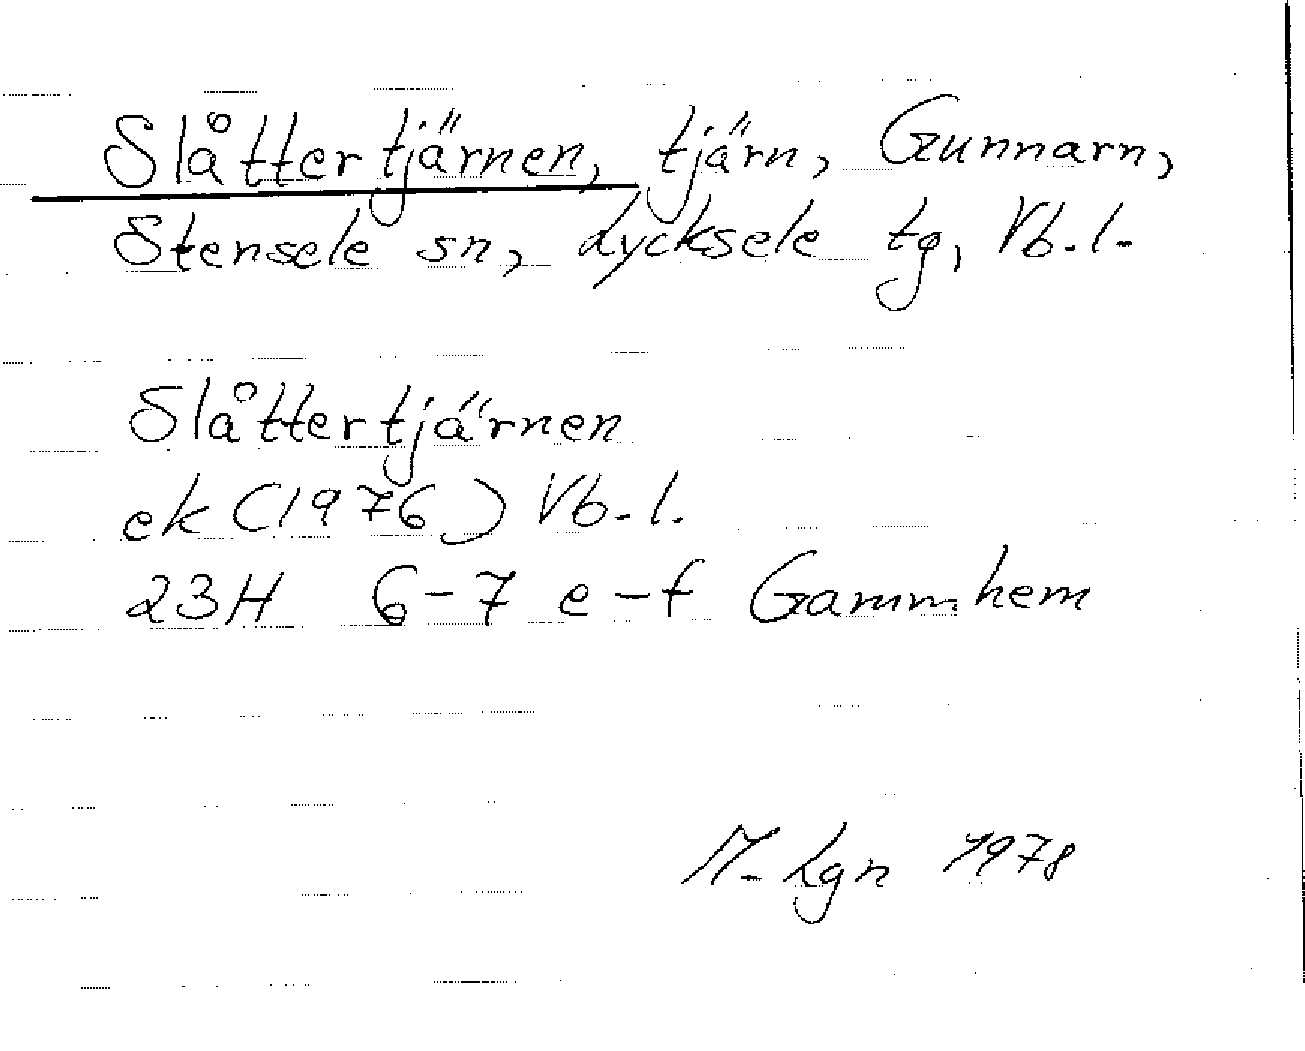 Slåttertjärnen, tjärn, Gunnarn,
Stensele sn, Lycksele tg, Vb.l.
Slåttertjärnen
ek (1976) Vb.l.
23H 6-7 e-f Gammhem
M. Lgn 1978